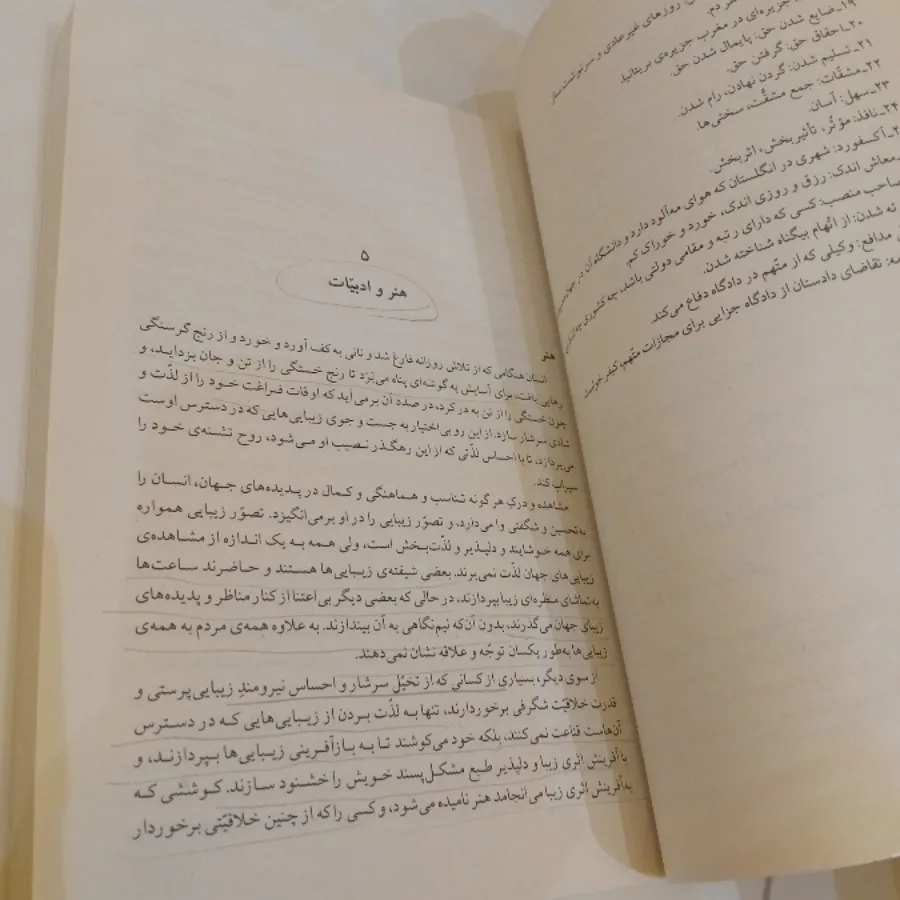 ۱۹ـ ضایع شدن حق: پایمال شدن حق.
۲۰ـ احقاق حق: گرفتن حق.
۲۱ـ تسلیم شدن: گردن نهادن، رام شدن.
۲۲ـ مشقّات: جمع مشقّت، سختی‌ها.
۲۳ـ سهل: آسان.
۲۴ـ نافذ: مؤثّر، تأثیربخش، اثربخش.
آکسفورد: شهری در انگلستان که هوای مه‌آلود دارد و دانشگاه آن در جهان
معاش اندک: رزق و روزی اندک، خورد و خورای کم.
صاحب منصب: کسی که دارای رتبه و مقامی دولتی باشد، چه کشوری چه
نه شدن: از اتّهام بیگناه شناخته شدن.
مدافع: وکیلی که از متّهم در دادگاه دفاع می‌کند.
مه: تقاضای دادستان از دادگاه جزایی برای مجازات متّهم، کیفر خواست
۵
هنر و ادبیّات
هنر
انسان هنگامی که از تلاش روزانه فارغ شد و نانی به کف آورد و خورد و از رنج گرسنگی
رهایی یافت، برای آسایش به گوشه‌ای پناه می‌بَرَد تا رنج خستگی را از تن و جان بزداید، و
چون خستگی را از تن به در کرد، در صدد آن برمی‌آید که اوقات فراغت خود را از لذّت و
شادی سرشار سازد. از این رو بی‌اختیار به جست و جوی زیبایی‌هایی که در دسترس اوست
می‌پردازد، تا با احساس لذّتی که از این رهگذر نصیب او می‌شود، روح تشنه‌ی خود را
سیراب کند.
مشاهده و درکِ هر گونه تناسب و هماهنگی و کمال در پدیده‌های جهان، انسان را
به تحسین و شگفتی وا می‌دارد، و تصوّر زیبایی را در او برمی‌انگیزد. تصوّر زیبایی همواره
برای همه خوشایند و دلپذیر و لذّت‌بخش است، ولی همه به یک اندازه از مشاهده‌ی
زیبایی‌های جهان لذّت نمی‌برند. بعضی شیفته‌ی زیبایی‌ها هستند و حاضرند ساعت‌ها
به تماشای منظره‌ای زیبا بپردازند، در حالی که بعضی دیگر بی‌اعتنا از کنار مناظر و پدیده‌های
زیبای جهان می‌گذرند، بدون آن‌که نیم‌نگاهی به آن بیندازند. به علاوه همه‌ی مردم به همه‌ی
زیبایی‌ها به‌طور یکسان توجّه و علاقه نشان نمی‌دهند.
از سوی دیگر، بسیاری از کسانی که از تخیّلِ سرشار و احساس نیرومندِ زیبایی‌پرستی و
قدرت خلاقیّت شگرفی برخوردارند، تنها به لذّت بردن از زیبایی‌هایی که در دسترس
آن‌هاست قناعت نمی‌کنند، بلکه خود می‌کوشند تا به بازآفرینی زیبایی‌ها بپردازند، و
با آفرینش اثری زیبا و دلپذیر طبع مشکل‌پسند خویش را خشنود سازند. کوششی که
به آفرینش اثری زیبا می‌انجامد هنر نامیده می‌شود، و کسی را که از چنین خلاقیّتی برخوردار